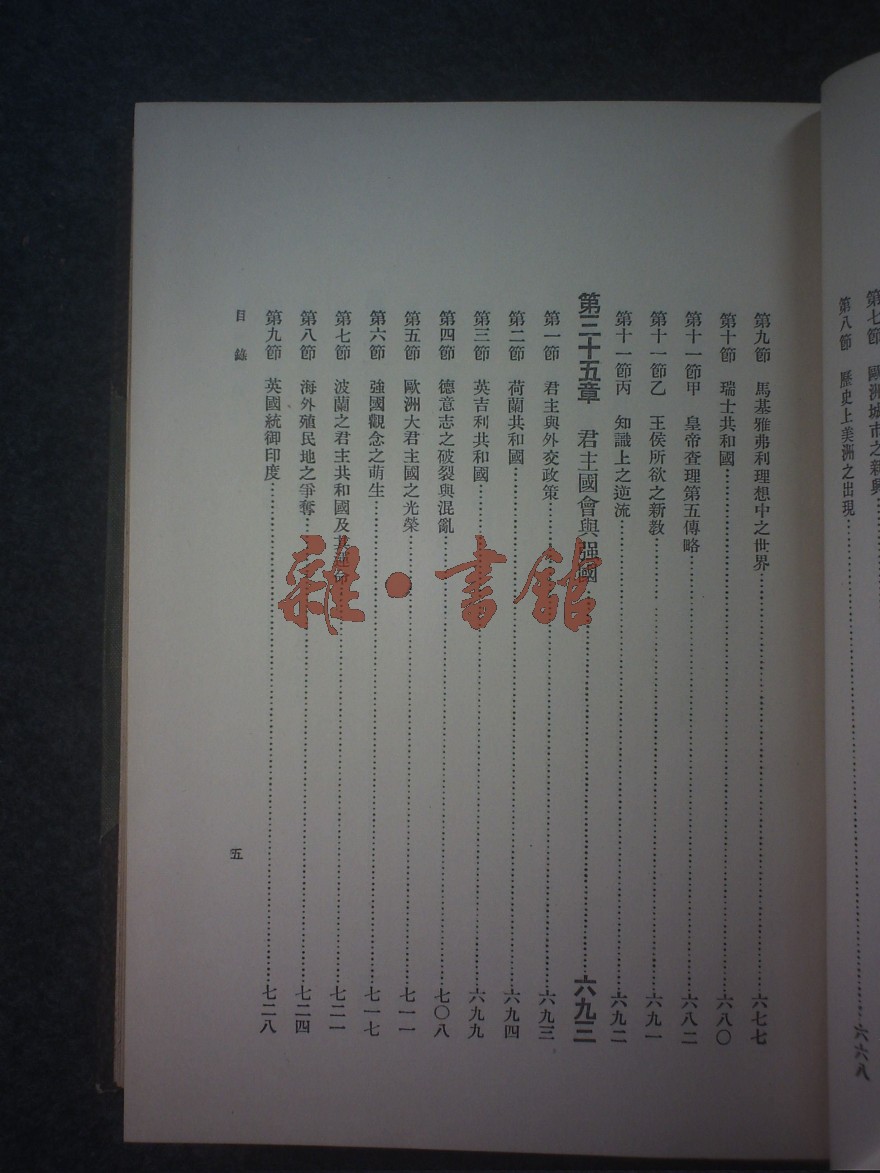 第七節　歐洲城市之新興
第八節　歷史上美洲之出現……六六八
第九節　馬基雅弗利理想中之世界……六七七
第十節　瑞士共和國……六八〇
第十一節甲　皇帝查理第五傳略……六八二
第十一節乙　王侯所欲之新教……六九一
第十一節丙　知識上之逆流……六九二
第三十五章　君主國會與强國……六九三
第一節　君主與外交政策……六九三
第二節　荷蘭共和國……六九四
第三節　英吉利共和國……六九九
第四節　德意志之破裂與混亂……七〇八
第五節　歐洲大君主國之光榮……七一一
第六節　強國觀念之萌生……七一七
第七節　波蘭之君主共和國及其運命……七二一
第八節　海外殖民地之爭奪……七二四
第九節　英國統御印度……七二八
目錄
五
雜·書館